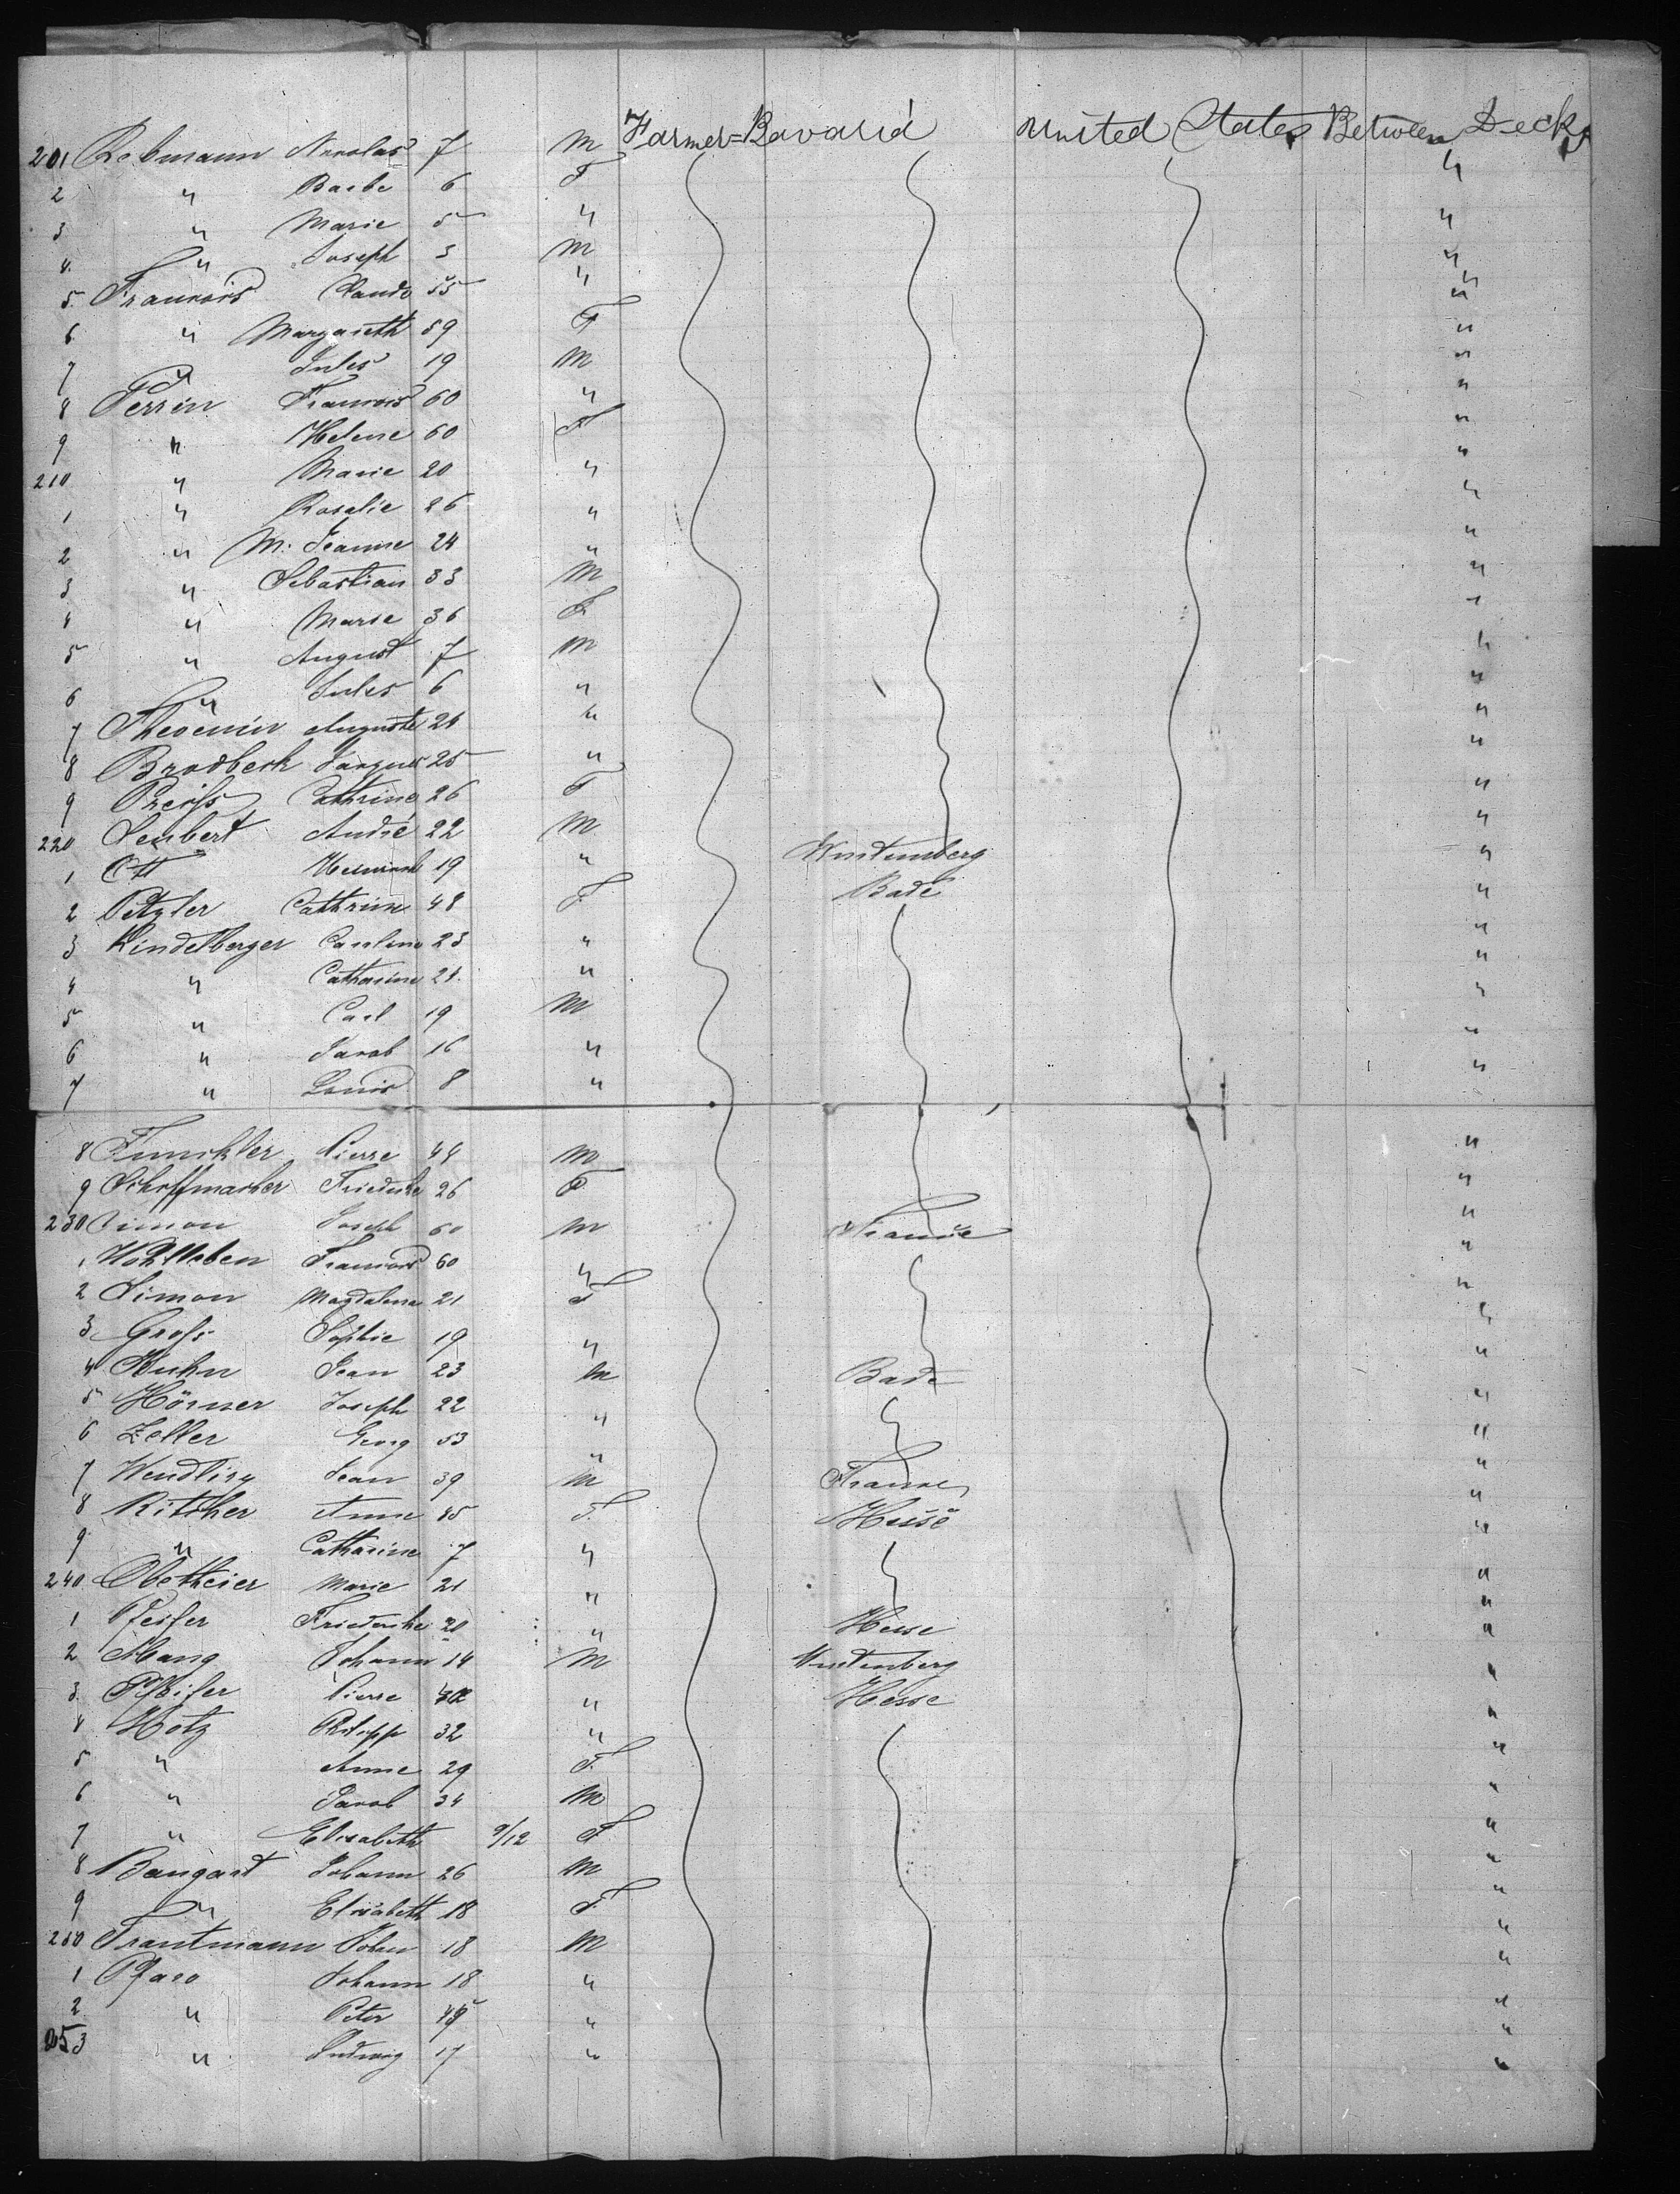 201 Rebmann Nicolas 7 M Farmer = Bavaria United States Between Decks
2 " Barbe 6 F "
3 " Marie 5 " "
4. " Joseph 3 M "
5. Francois Claude 55 " "
6 " Margareth 59 F "
7 " Jules 19 M "
8 Perrin Francois 60 " "
9 " Helene 60 F "
210 " Marie 20 " "
1 " Rosalie 26 " "
2 " M. Jeanne 24 " "
3 " Sebastian 33 M "
4 " Marie 36 F "
5 " August 7 M "
6 " Jules 6 " "
7 Auguste 21 " "
8 Brodbeck Jacques 25 " "
9 Preiss Cathrine 26 F "
220 Seubert André 22 M "
1 Ott Heinrich 19 " Wurtemberg "
2 Petzler Cathrine 48 F Bade "
3 Kindelberger Caroline 23 " "
4 " Catharine 21 " "
5 " Carl 19 M "
6 " Jacob 16 " "
7 " Louis 8 " "
8 Funckler Pierre 44 M "
9 Schoffmacher Friederike 26 F "
230 Simon Joseph 60 M France "
1 Wohlleben Francois 60 " "
2 Simon Magdalena 21 F "
3 Gross Sophie 19 " "
4 Kuhn Jean 23 M Bade "
5 Hörner Joseph 22 " "
6 Zeller Georg 53 " "
7 Wendling Jean 39 M France "
8 Ritcher Anne 35 F. Hesse "
9 " Catharine 7 " "
240 Obetheier Marie 21 " "
1 Pfeifer Friederike 20 " Hesse "
2 Mang Johann 14 M Wurtemberg "
3. Pfeifer Pierre " Hesse "
4 Hotz Philipp 32 " "
5 " Anne 29 F. "
6 " Jacob 34 M "
7 " Elisabeth 9/12 F "
8 Baugart Johann 26 M "
9 " Elisabeth 18 F "
250 Trautmann Johan 18 M "
1 Pfaro Johann 18 " "
2 " Peter " "
253 " Ludwig 17 " "